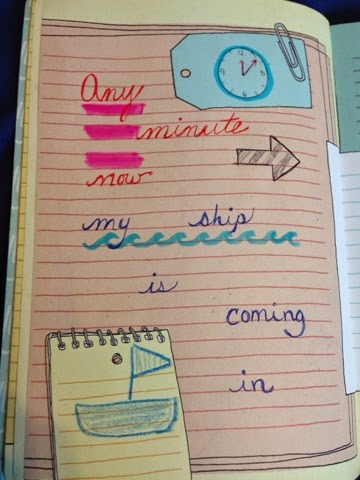 Any
minute
now
my ship
is
coming
in